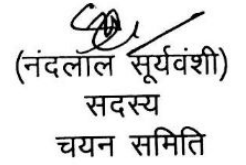 (नंदलाल सूर्यवंशी)
सदस्य
चयन समिति